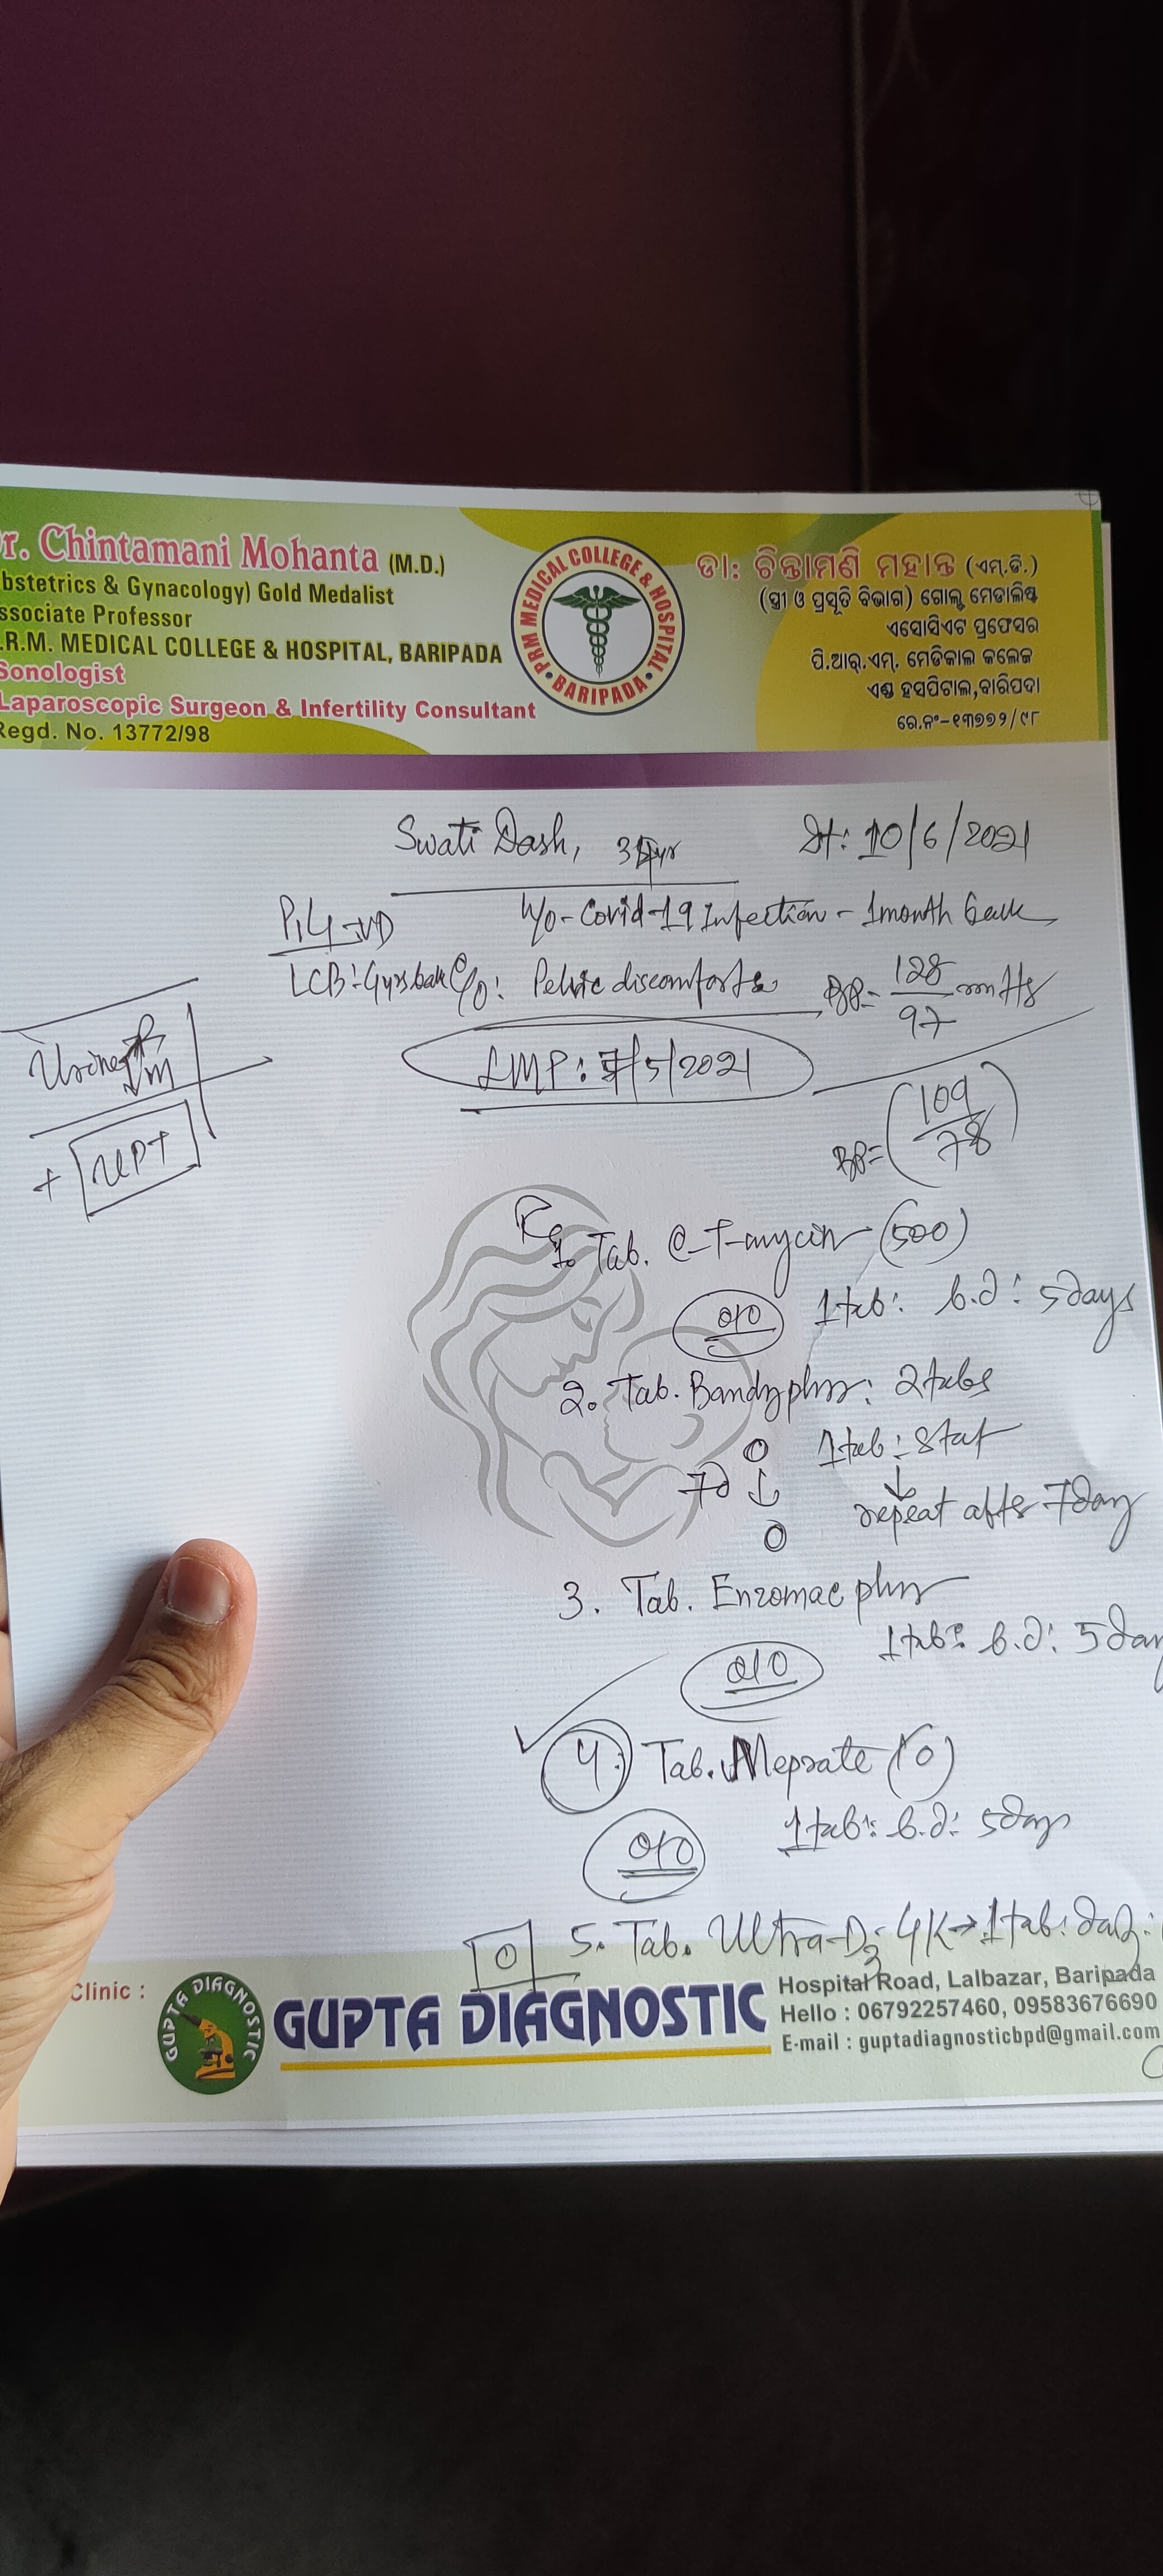 r. Chintamani Mohanta (M.D.)
bstetrics & Gynacology) Gold Medalist
ssociate Professor
.R.M. MEDICAL COLLEGE & HOSPITAL, BARIPADA
Sonologist
Laparoscopic Surgeon & Infertility Consultant
Regd. No. 13772/98
PRM MEDICAL COLLEGE & HOSPITAL
BARIPADA
ଡା: ଚିନ୍ତାମଣି ମହାନ୍ତ (ଏମ୍.ଡି.)
(ସ୍ତ୍ରୀ ଓ ପ୍ରସୂତି ବିଭାଗ) ଗୋଲ୍ଡ ମେଡାଲିଷ୍ଟ
ଏସୋସିଏଟ ପ୍ରଫେସର
ପି.ଆର୍.ଏମ୍. ମେଡିକାଲ କଲେଜ
ଏଣ୍ଡ ହସପିଟାଲ,ବାରିପଦା
ରେ.ନଂ-୧୩୭୭୨/୯୮
Swati Dash, Dt: 10/6/2021
H/O-Covid-19 Infection - 1month back
LCB: 4yrs back C/O: Pelvic discomforts BP= 128/97 mmHg
Urine
LMP: 7/5/2021
+ UPT
BP= (109/78)
Rx
1. Tab. (500)
1tab: b.d: 5days
2. Tab. Bandyplus: 2tabs
1tab: stat
7d ↓ repeat after 7day
3. Tab. Enzomac plus
1tab: b.d: 5day
4. Tab. Meprate (10)
1tab: b.d: 5days
5. Tab. Ultra-D3 4K→1tab: daily
Clinic :
GUPTA DIAGNOSTIC
GUPTA DIAGNOSTIC
Hospital Road, Lalbazar, Baripada
Hello : 06792257460, 09583676690
E-mail : guptadiagnosticbpd@gmail.com